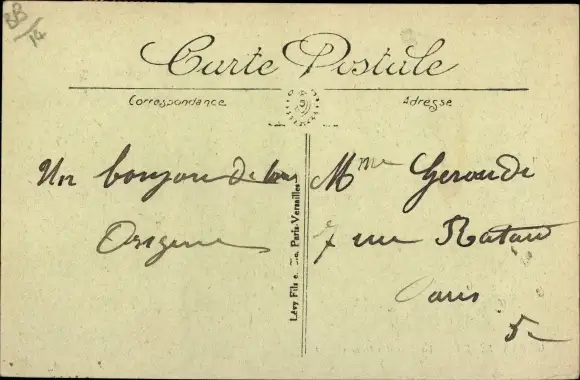 BB
14
Carte Postale
Correspondance
Adresse
Un bonjour de
Lévy Fils et Cie, Paris-Versailles
Mme
7 rue Rataud
Paris
5